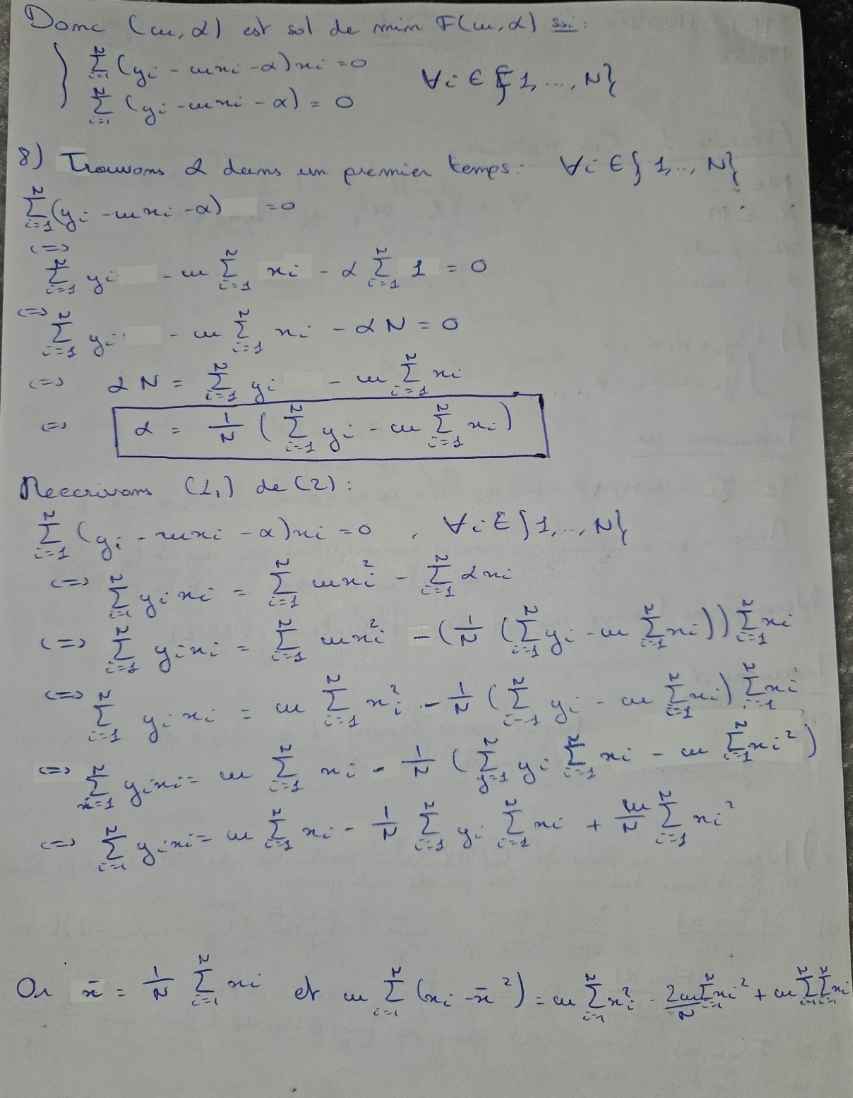 Donc (m, α) est sol de min F(m, α) ssi:
{ ∑_{i=1}^N (yi - mxi - α)xi = 0
∑_{i=1}^N (yi - mxi - α) = 0 ∀i ∈ {1, ..., N}
8) Trouvons α dans un premier temps: ∀i ∈ {1, .., N}
∑_{i=1}^N (yi - mxi - α) = 0
<=> ∑_{i=1}^N yi - m ∑_{i=1}^N xi - α ∑_{i=1}^N 1 = 0
<=> ∑_{i=1}^N yi - m ∑_{i=1}^N xi - αN = 0
<=> αN = ∑_{i=1}^N yi - m ∑_{i=1}^N xi
<=> α = 1/N ( ∑_{i=1}^N yi - m ∑_{i=1}^N xi )
Reecrivons (1,) de (2):
∑_{i=1}^N (yi - mxi - α)xi = 0 , ∀i ∈ {1, .., N}
<=> ∑_{i=1}^N yixi = ∑_{i=1}^N mxi² - ∑_{i=1}^N αxi
<=> ∑_{i=1}^N yixi = ∑_{i=1}^N mxi² - (1/N (∑_{i=1}^N yi - m ∑_{i=1}^N xi)) ∑_{i=1}^N xi
<=> ∑_{i=1}^N yixi = m ∑_{i=1}^N xi² - 1/N (∑_{i=1}^N yi - m ∑_{i=1}^N xi) ∑_{i=1}^N xi
<=> ∑_{i=1}^N yixi = m ∑_{i=1}^N xi - 1/N (∑_{j=1}^N yi ∑_{i=1}^N xi - m ∑_{i=1}^N xi²)
<=> ∑_{i=1}^N yixi = m ∑_{i=1}^N xi - 1/N ∑_{i=1}^N yi ∑_{i=1}^N xi + m/N ∑_{i=1}^N xi²
Or x̄ = 1/N ∑_{i=1}^N xi et m ∑_{i=1}^N (xi - x̄²) = m ∑_{i=1}^N xi² - 2m/N ∑_{i=1}^N xi² + m ∑_{i=1}^N ∑_{i=1}^N xi